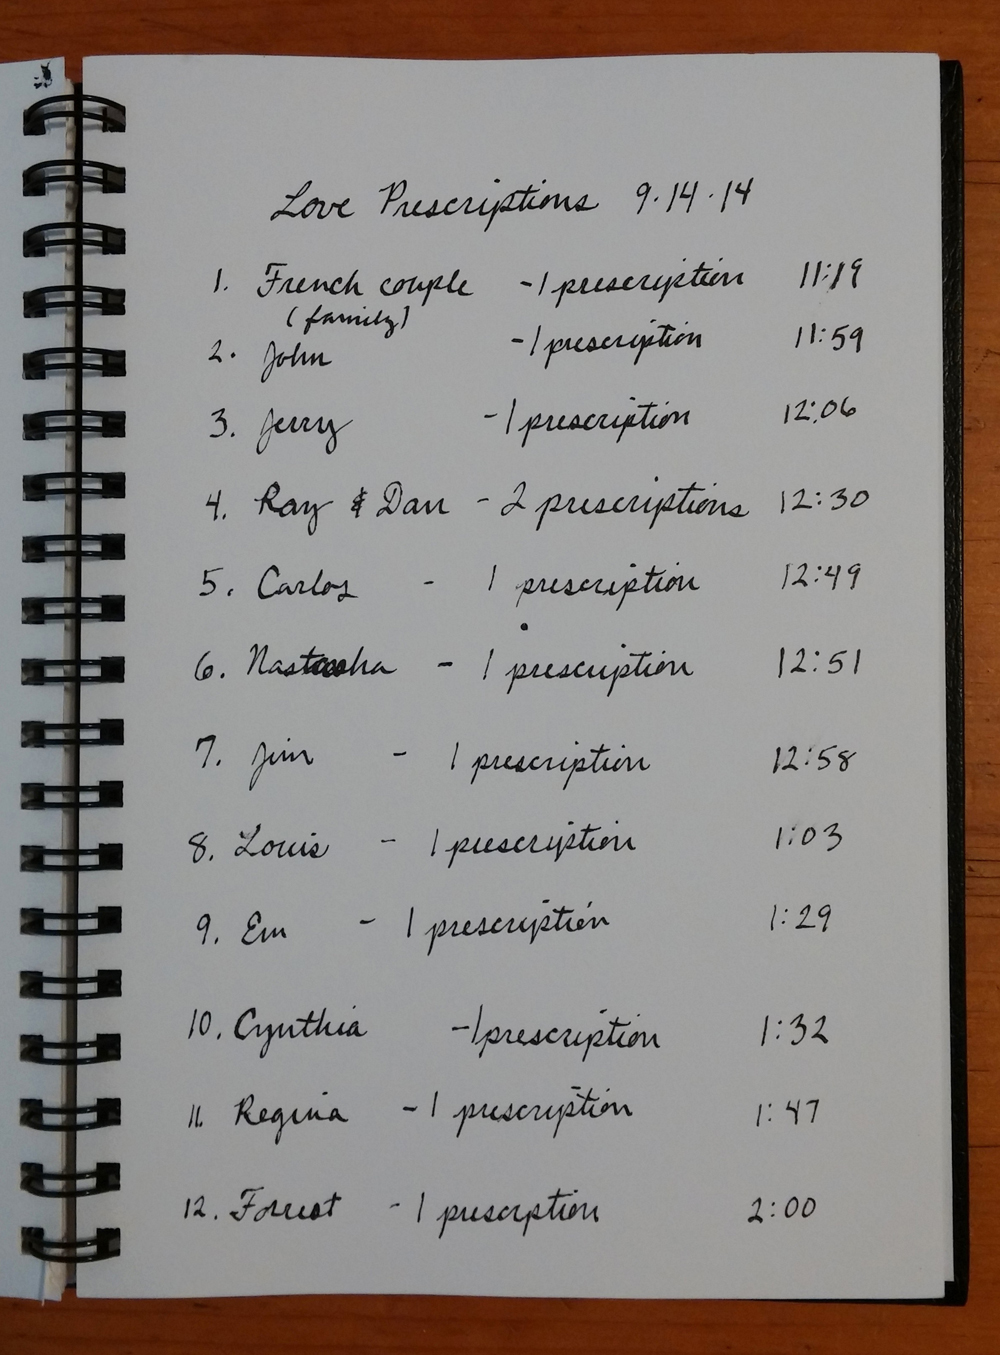 Love Prescriptions 9.14.14
1. French couple - 1 prescription 11:19
(family)
2. John - 1 prescription 11:59
3. Jerry - 1 prescription 12:06
4. Ray & Dan - 2 prescriptions 12:30
5. Carlos - 1 prescription 12:49
6. Nastassha - 1 prescription 12:51
7. Jim - 1 prescription 12:58
8. Louis - 1 prescription 1:03
9. Em - 1 prescription 1:29
10. Cynthia - 1 prescription 1:32
11. Regina - 1 prescription 1:47
12. Forrest - 1 prescription 2:00